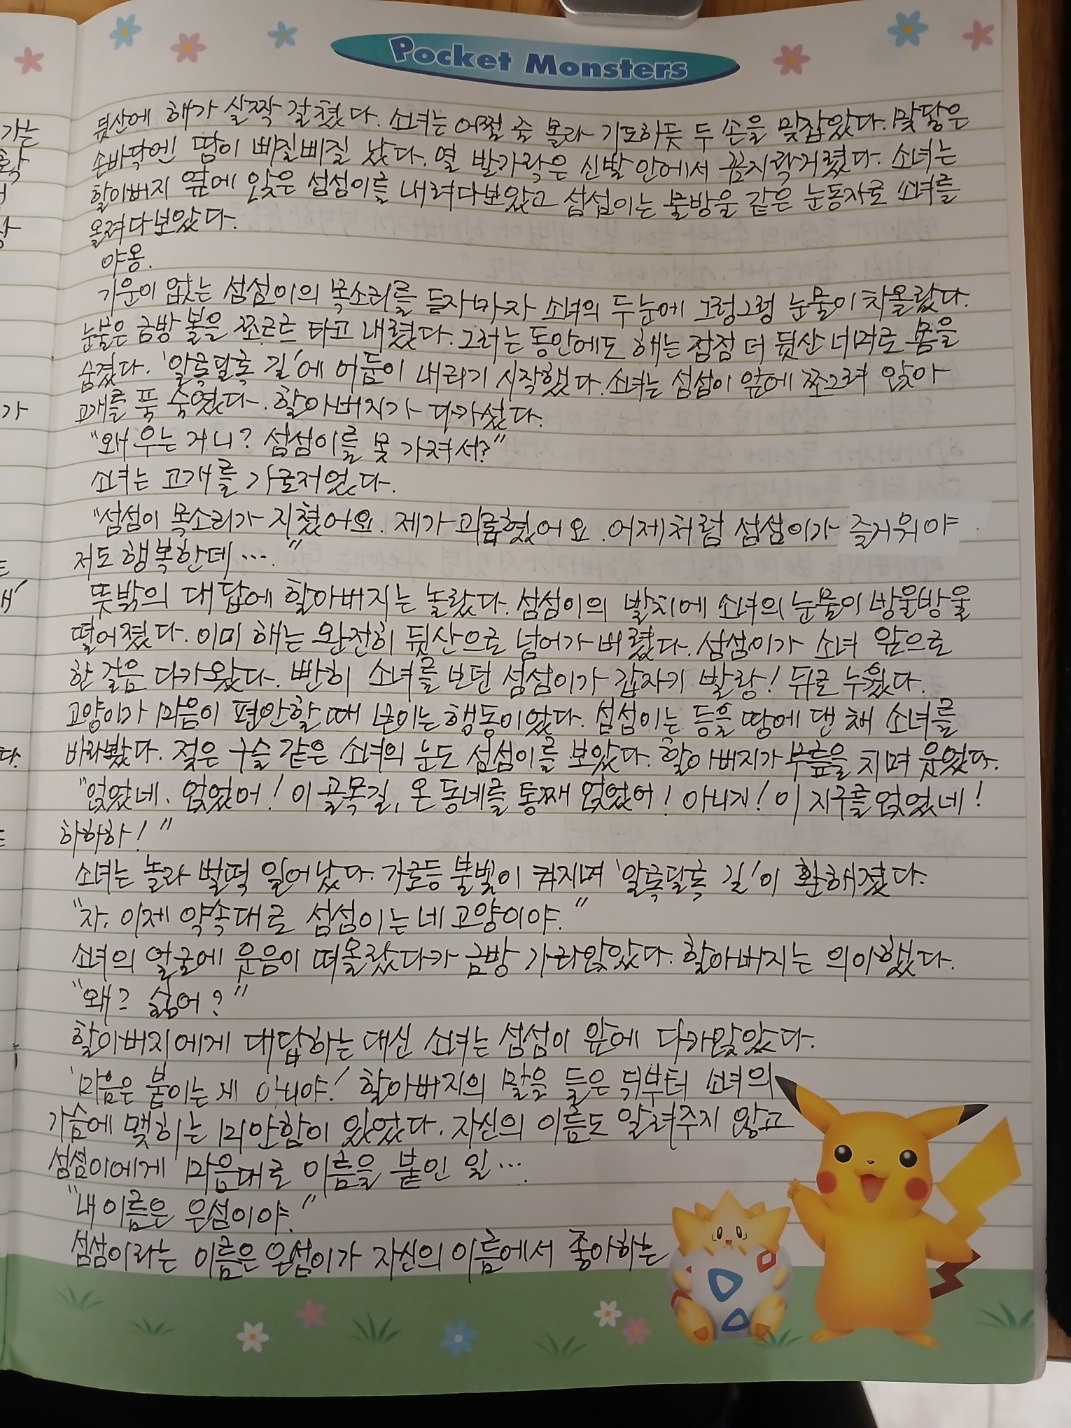 Pocket Monsters
뒷산에 해가 살짝 걸쳤다. 소녀는 어쩔 줄 몰라 기도하듯 두 손을 맞잡았다. 맞닿은
손바닥엔 땀이 삐질삐질 났다. 열 발가락은 신발 안에서 꼼지락거렸다. 소녀는
할아버지 옆에 앉은 섬섬이를 내려다보았고 섬섬이는 물방울 같은 눈동자로 소녀를
올려다보았다.
야옹.
기운이 없는 섬섬이의 목소리를 듣자마자 소녀의 두 눈에 그렁그렁 눈물이 차올랐다.
눈물은 금방 볼을 쪼르르 타고 내렸다. 그러는 동안에도 해는 점점 더 뒷산 너머로 몸을
숨겼다. '알록달록 길'에 어둠이 내리기 시작했다. 소녀는 섬섬이 앞에 쪼그려 앉아
고개를 푹 숙였다. 할아버지가 다가섰다.
"왜 우는 거니? 섬섬이를 못 가져서?"
소녀는 고개를 가로저었다.
"섬섬이 목소리가 지쳤어요. 제가 괴롭혔어요. 어제처럼 섬섬이가 즐거워야
저도 행복한데…."
뜻밖의 대답에 할아버지는 놀랐다. 섬섬이의 발치에 소녀의 눈물이 방울방울
떨어졌다. 이미 해는 완전히 뒷산으로 넘어가 버렸다. 섬섬이가 소녀 앞으로
한 걸음 다가왔다. 빤히 소녀를 보던 섬섬이가 갑자기 발랑! 뒤로 누웠다.
고양이가 마음이 편안할 때 보이는 행동이었다. 섬섬이는 등을 땅에 댄 채 소녀를
바라봤다. 젖은 구슬 같은 소녀의 눈도 섬섬이를 보았다. 할아버지가 무릎을 치며 웃었다.
"얻었네. 얻었어! 이 골목길, 온 동네를 통째 얻었어! 아니지! 이 지구를 얻었네!
하하하!"
소녀는 놀라 벌떡 일어났다. 가로등 불빛이 켜지며 '알록달록 길'이 환해졌다.
"자, 이제 약속대로 섬섬이는 네 고양이야."
소녀의 얼굴에 웃음이 떠올랐다가 금방 가라앉았다. 할아버지는 의아했다.
"왜? 싫어?"
할아버지에게 대답하는 대신 소녀는 섬섬이 앞에 다가앉았다.
'마음은 붙이는 게 아니야.' 할아버지의 말을 들은 뒤부터 소녀의
가슴에 맺히는 미안함이 있었다. 자신의 이름도 알려주지 않고
섬섬이에게 마음대로 이름을 붙인 일…
"내 이름은 은섬이야."
섬섬이라는 이름은 은섬이가 자신의 이름에서 좋아하는